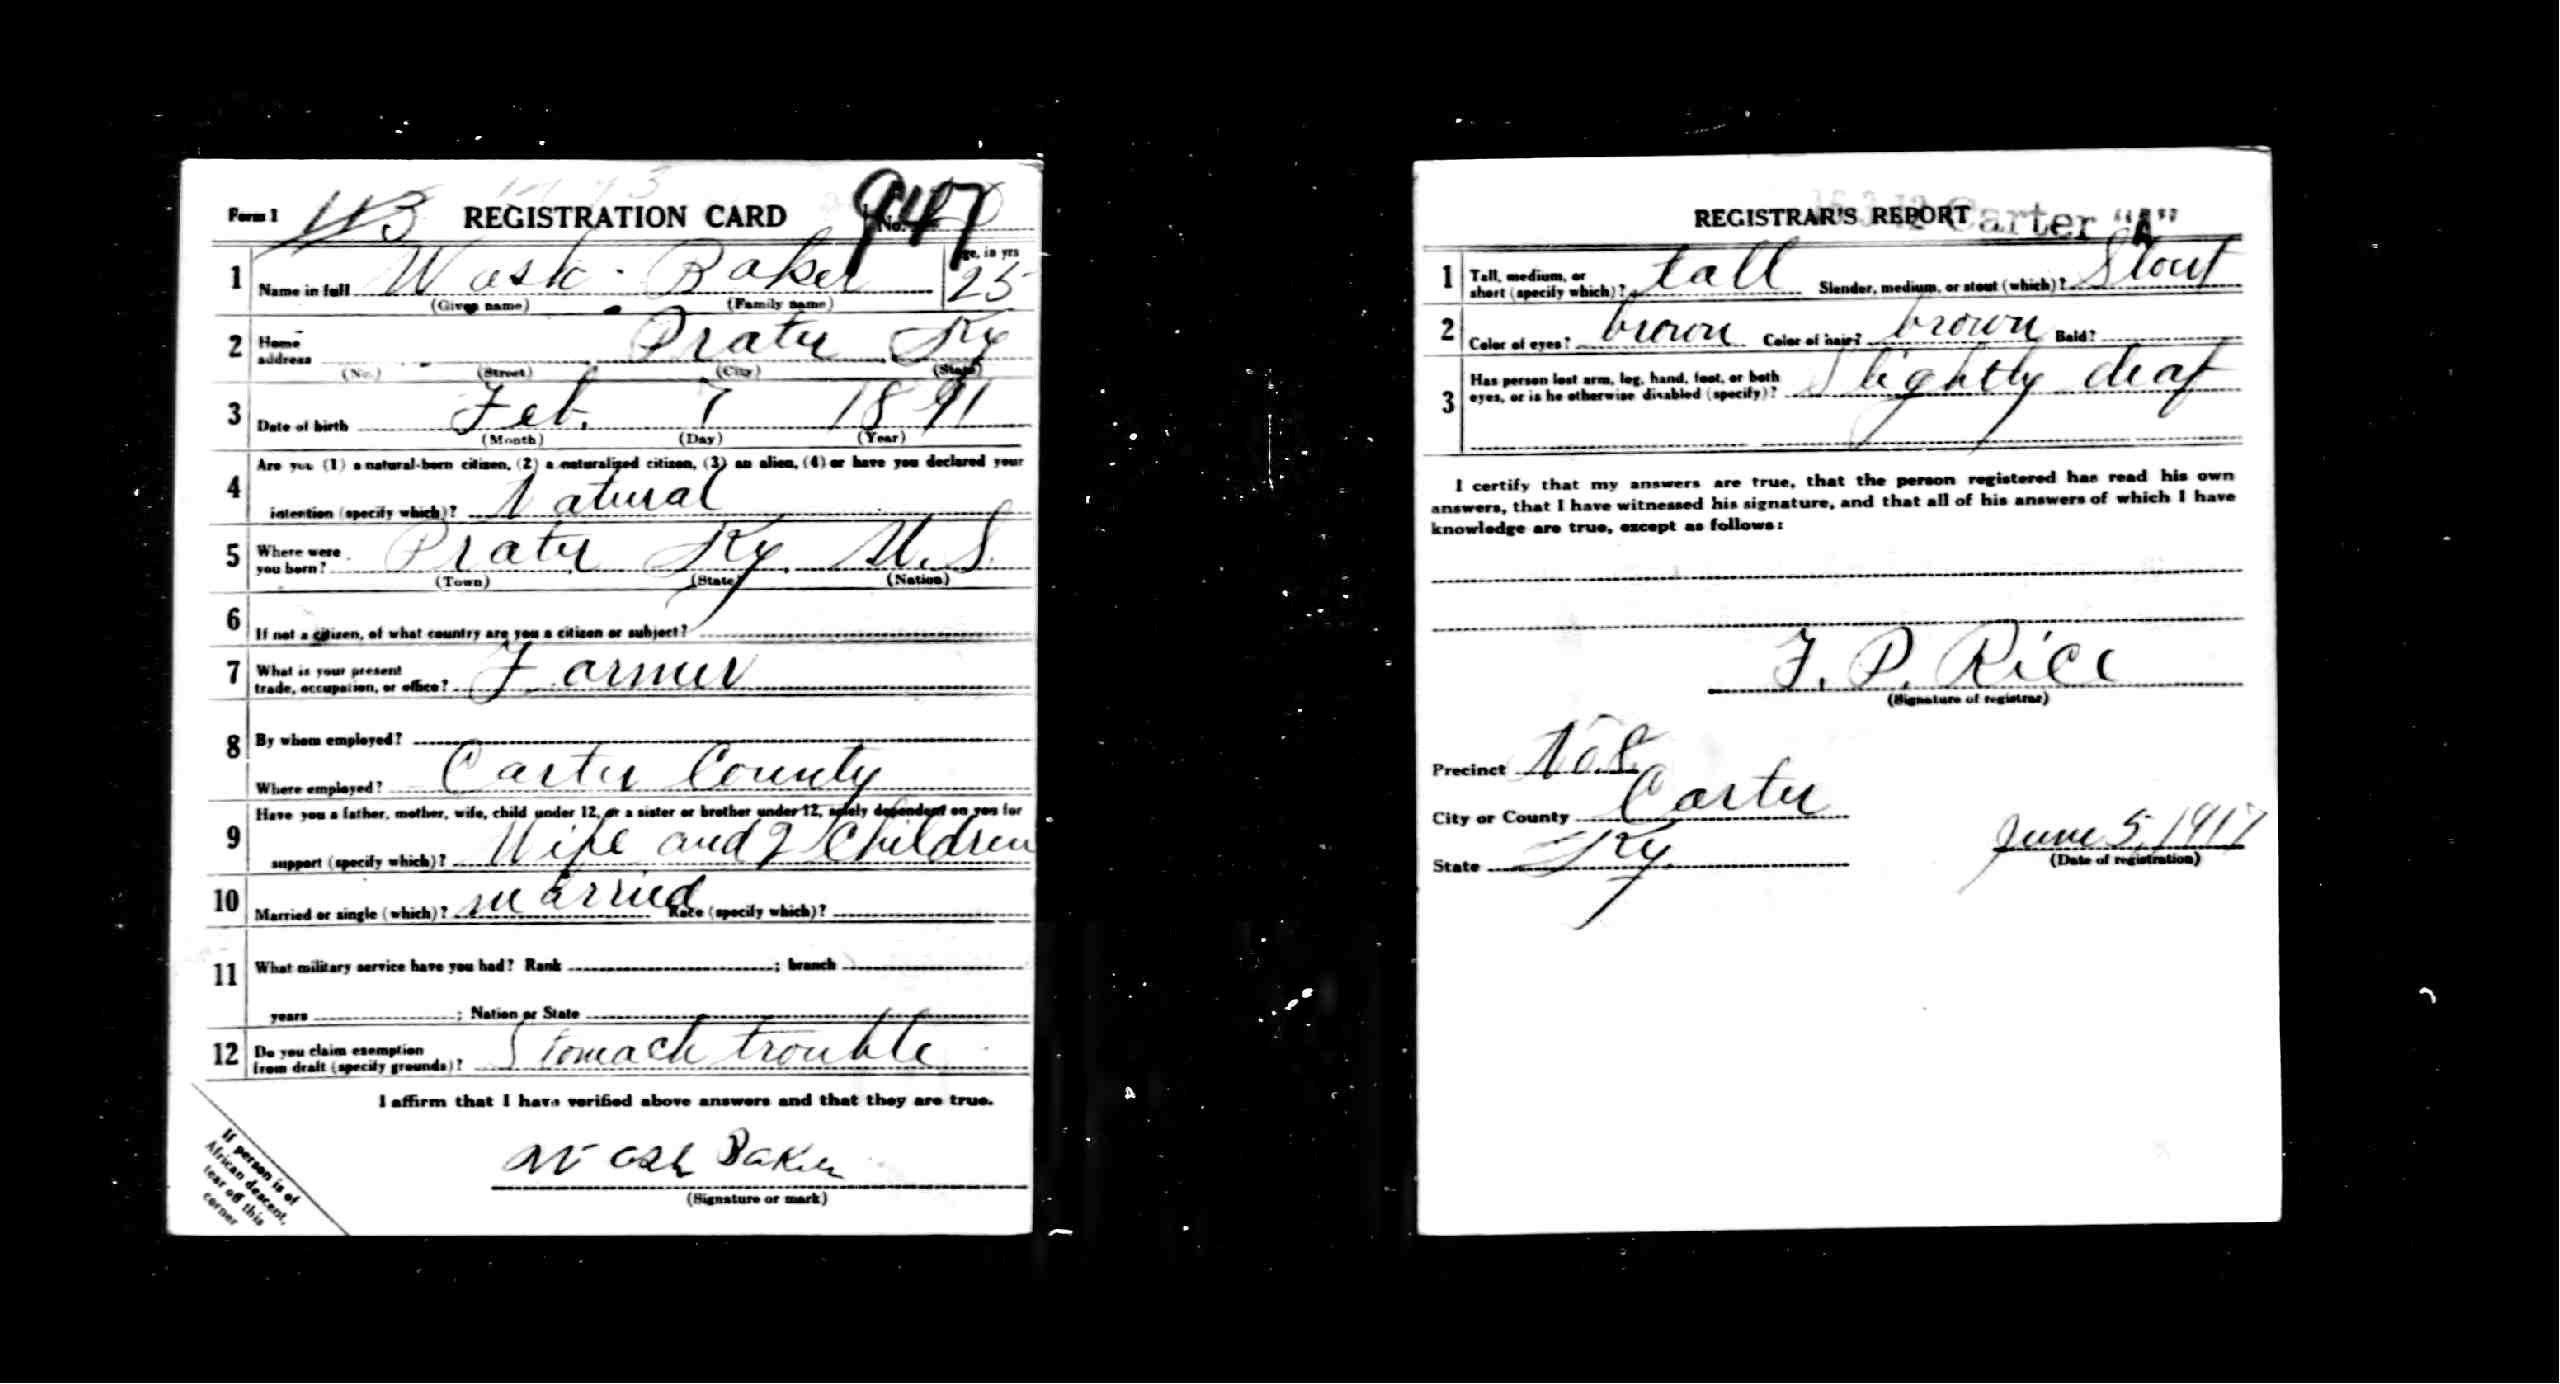 Form 1 113 REGISTRATION CARD No. 947
1 Name in full Wash Baker Age, in yrs 25
(Given name) (Family name)
2 Home address Prater Ky
(No.) (Street) (City) (State)
3 Date of birth Feb. 7 1891
(Month) (Day) (Year)
4 Are you (1) a natural-born citizen, (2) a naturalized citizen, (3) an alien, (4) or have you declared your
intention (specify which)? Natural
5 Where were you born? Prater Ky. U.S.
(Town) (State) (Nation)
6 If not a citizen, of what country are you a citizen or subject?
7 What is your present trade, occupation, or office? Farmer
8 By whom employed?
Where employed? Carter County
9 Have you a father, mother, wife, child under 12, or a sister or brother under 12, solely dependent on you for
support (specify which)? Wife and 2 Children
10 Married or single (which)? married Race (specify which)?
11 What military service have you had? Rank ; branch
years ; Nation or State
12 Do you claim exemption from draft (specify grounds)? Stomach trouble
I affirm that I have verified above answers and that they are true.
Wash Baker
(Signature or mark)
If person is of
African descent,
tear off this
corner
REGISTRAR'S REPORT Carter "A"
1 Tall, medium, or short (specify which)? tall Slender, medium, or stout (which)? Stout
2 Color of eyes? brown Color of hair? brown Bald?
3 Has person lost arm, leg, hand, foot, or both eyes, or is he otherwise disabled (specify)? Slightly deaf
I certify that my answers are true, that the person registered has read his own
answers, that I have witnessed his signature, and that all of his answers of which I have
knowledge are true, except as follows:
F. P. Rice
(Signature of registrar)
Precinct No. 8
City or County Carter
State Ky.
June 5, 1917
(Date of registration)